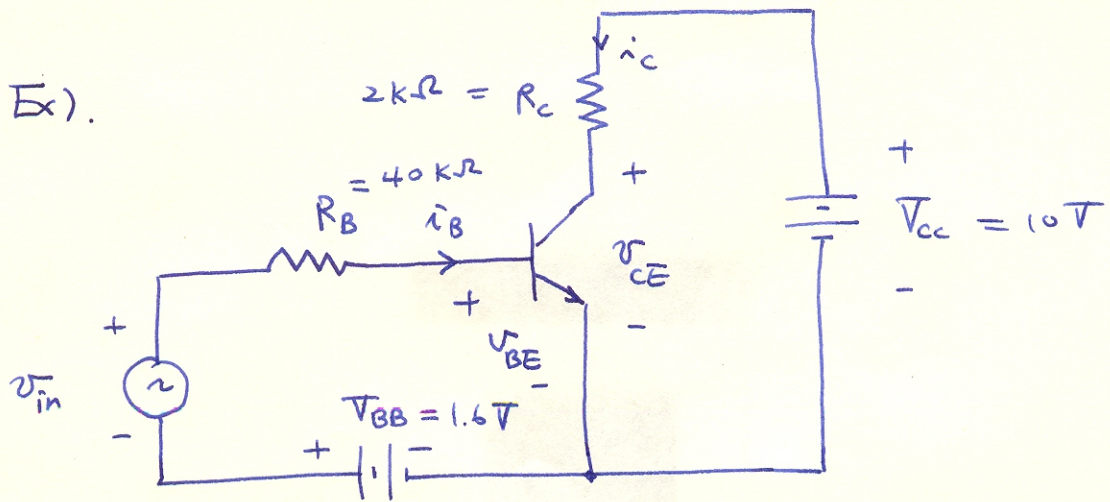 Ex).
2kΩ = R_C
i_C
= 40 kΩ
R_B
i_B
+
v_CE
-
+
V_CC = 10 V
-
+
v_BE
-
+
v_in
-
V_BB = 1.6 V
+
-